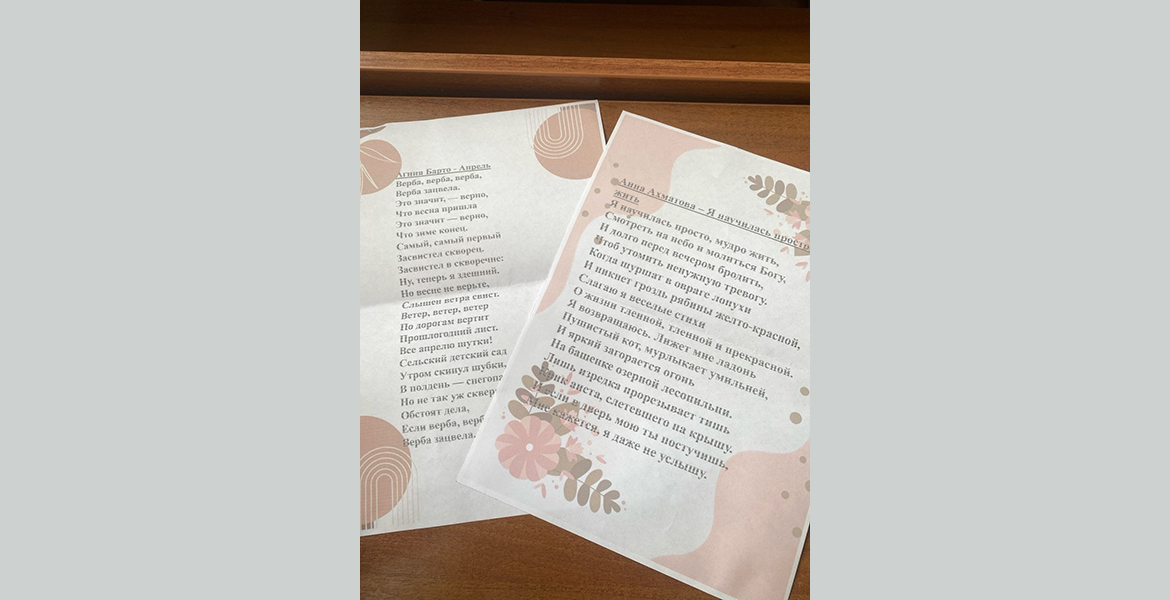 Агния Барто - Апрель
Верба, верба, верба,
Верба зацвела.
Это значит, — верно,
Что весна пришла
Это значит — верно,
Что зиме конец.
Самый, самый первый
Засвистел скворец.
Засвистел в скворечне:
Ну, теперь я здешний.
Но весне не верьте,
Слышен ветра свист.
Ветер, ветер, ветер
По дорогам вертит
Прошлогодний лист.
Все апрелю шутки!
Сельский детский сад
Утром скинул шубки,
В полдень — снегопа
Но не так уж сквер
Обстоят дела,
Если верба, верб
Верба зацвела.
Анна Ахматова – Я научилась просто
жить
Я научилась просто, мудро жить,
Смотреть на небо и молиться Богу,
И долго перед вечером бродить,
Чтоб утомить ненужную тревогу.
Когда шуршат в овраге лопухи
И никнет гроздь рябины желто-красной,
Слагаю я веселые стихи
О жизни тленной, тленной и прекрасной.
Я возвращаюсь. Лижет мне ладонь
Пушистый кот, мурлыкает умильней,
И яркий загорается огонь
На башенке озерной лесопильни.
Лишь изредка прорезывает тишь
Крик аиста, слетевшего на крышу.
И если в дверь мою ты постучишь,
Мне кажется, я даже не услышу.